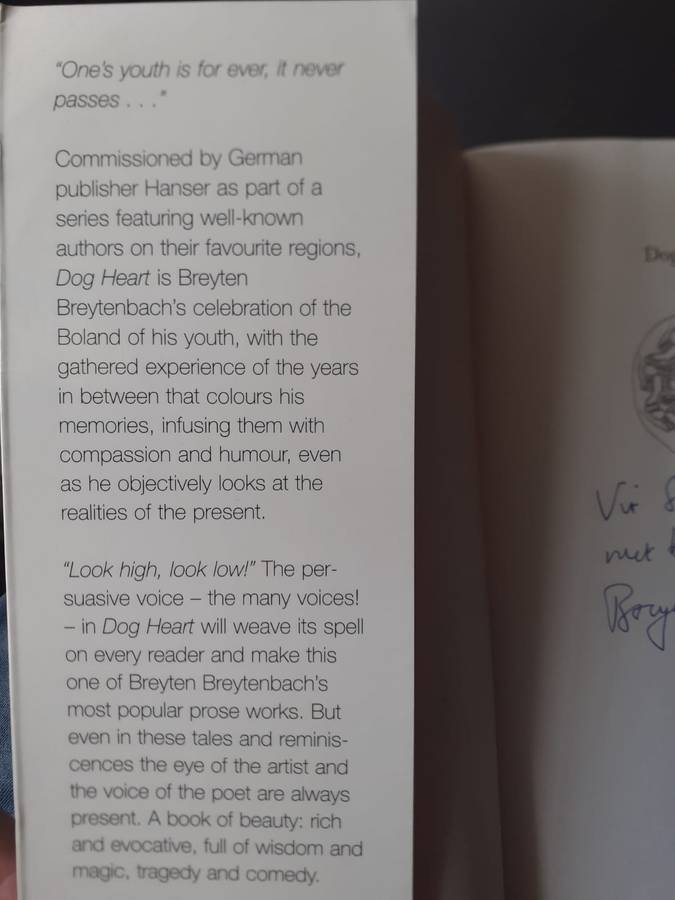 "One's youth is for ever, it never
passes . . ."
Commissioned by German
publisher Hanser as part of a
series featuring well-known
authors on their favourite regions,
Dog Heart is Breyten
Breytenbach's celebration of the
Boland of his youth, with the
gathered experience of the years
in between that colours his
memories, infusing them with
compassion and humour, even
as he objectively looks at the
realities of the present.
"Look high, look low!" The per-
suasive voice – the many voices!
– in Dog Heart will weave its spell
on every reader and make this
one of Breyten Breytenbach's
most popular prose works. But
even in these tales and reminis-
cences the eye of the artist and
the voice of the poet are always
present. A book of beauty: rich
and evocative, full of wisdom and
magic, tragedy and comedy.
Dog
Vir
met